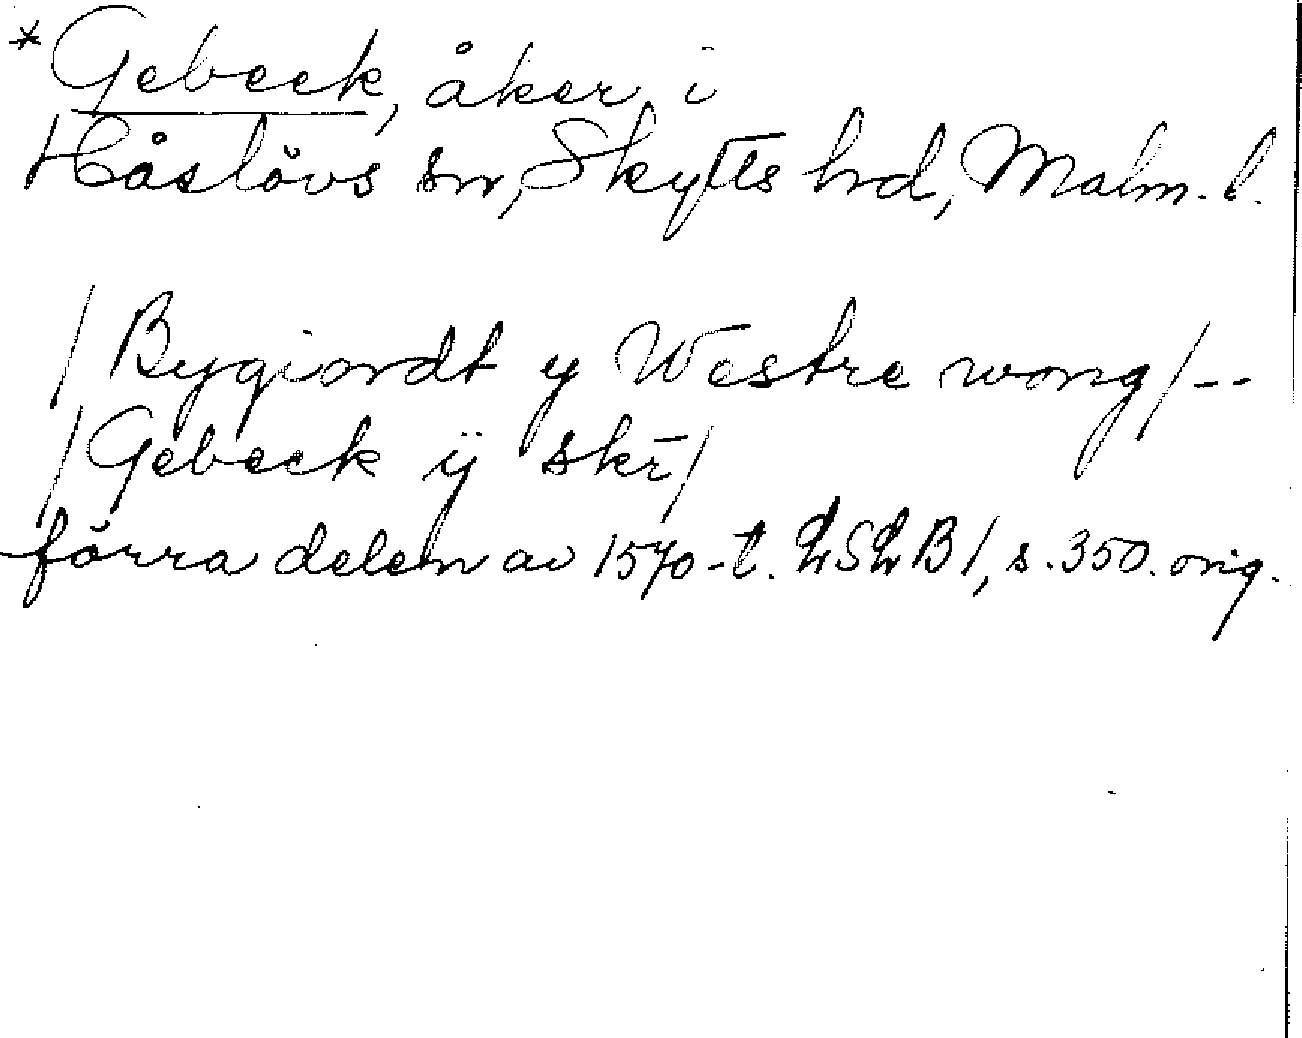 *Gebeck, åker i
Håslövs sn, Skytts hd, Malm. l.
/Bygiordt y Westre wong/--
/Gebeck ÿ skr̄/
förra delen av 1570-t. LSLB1, s. 350. orig.